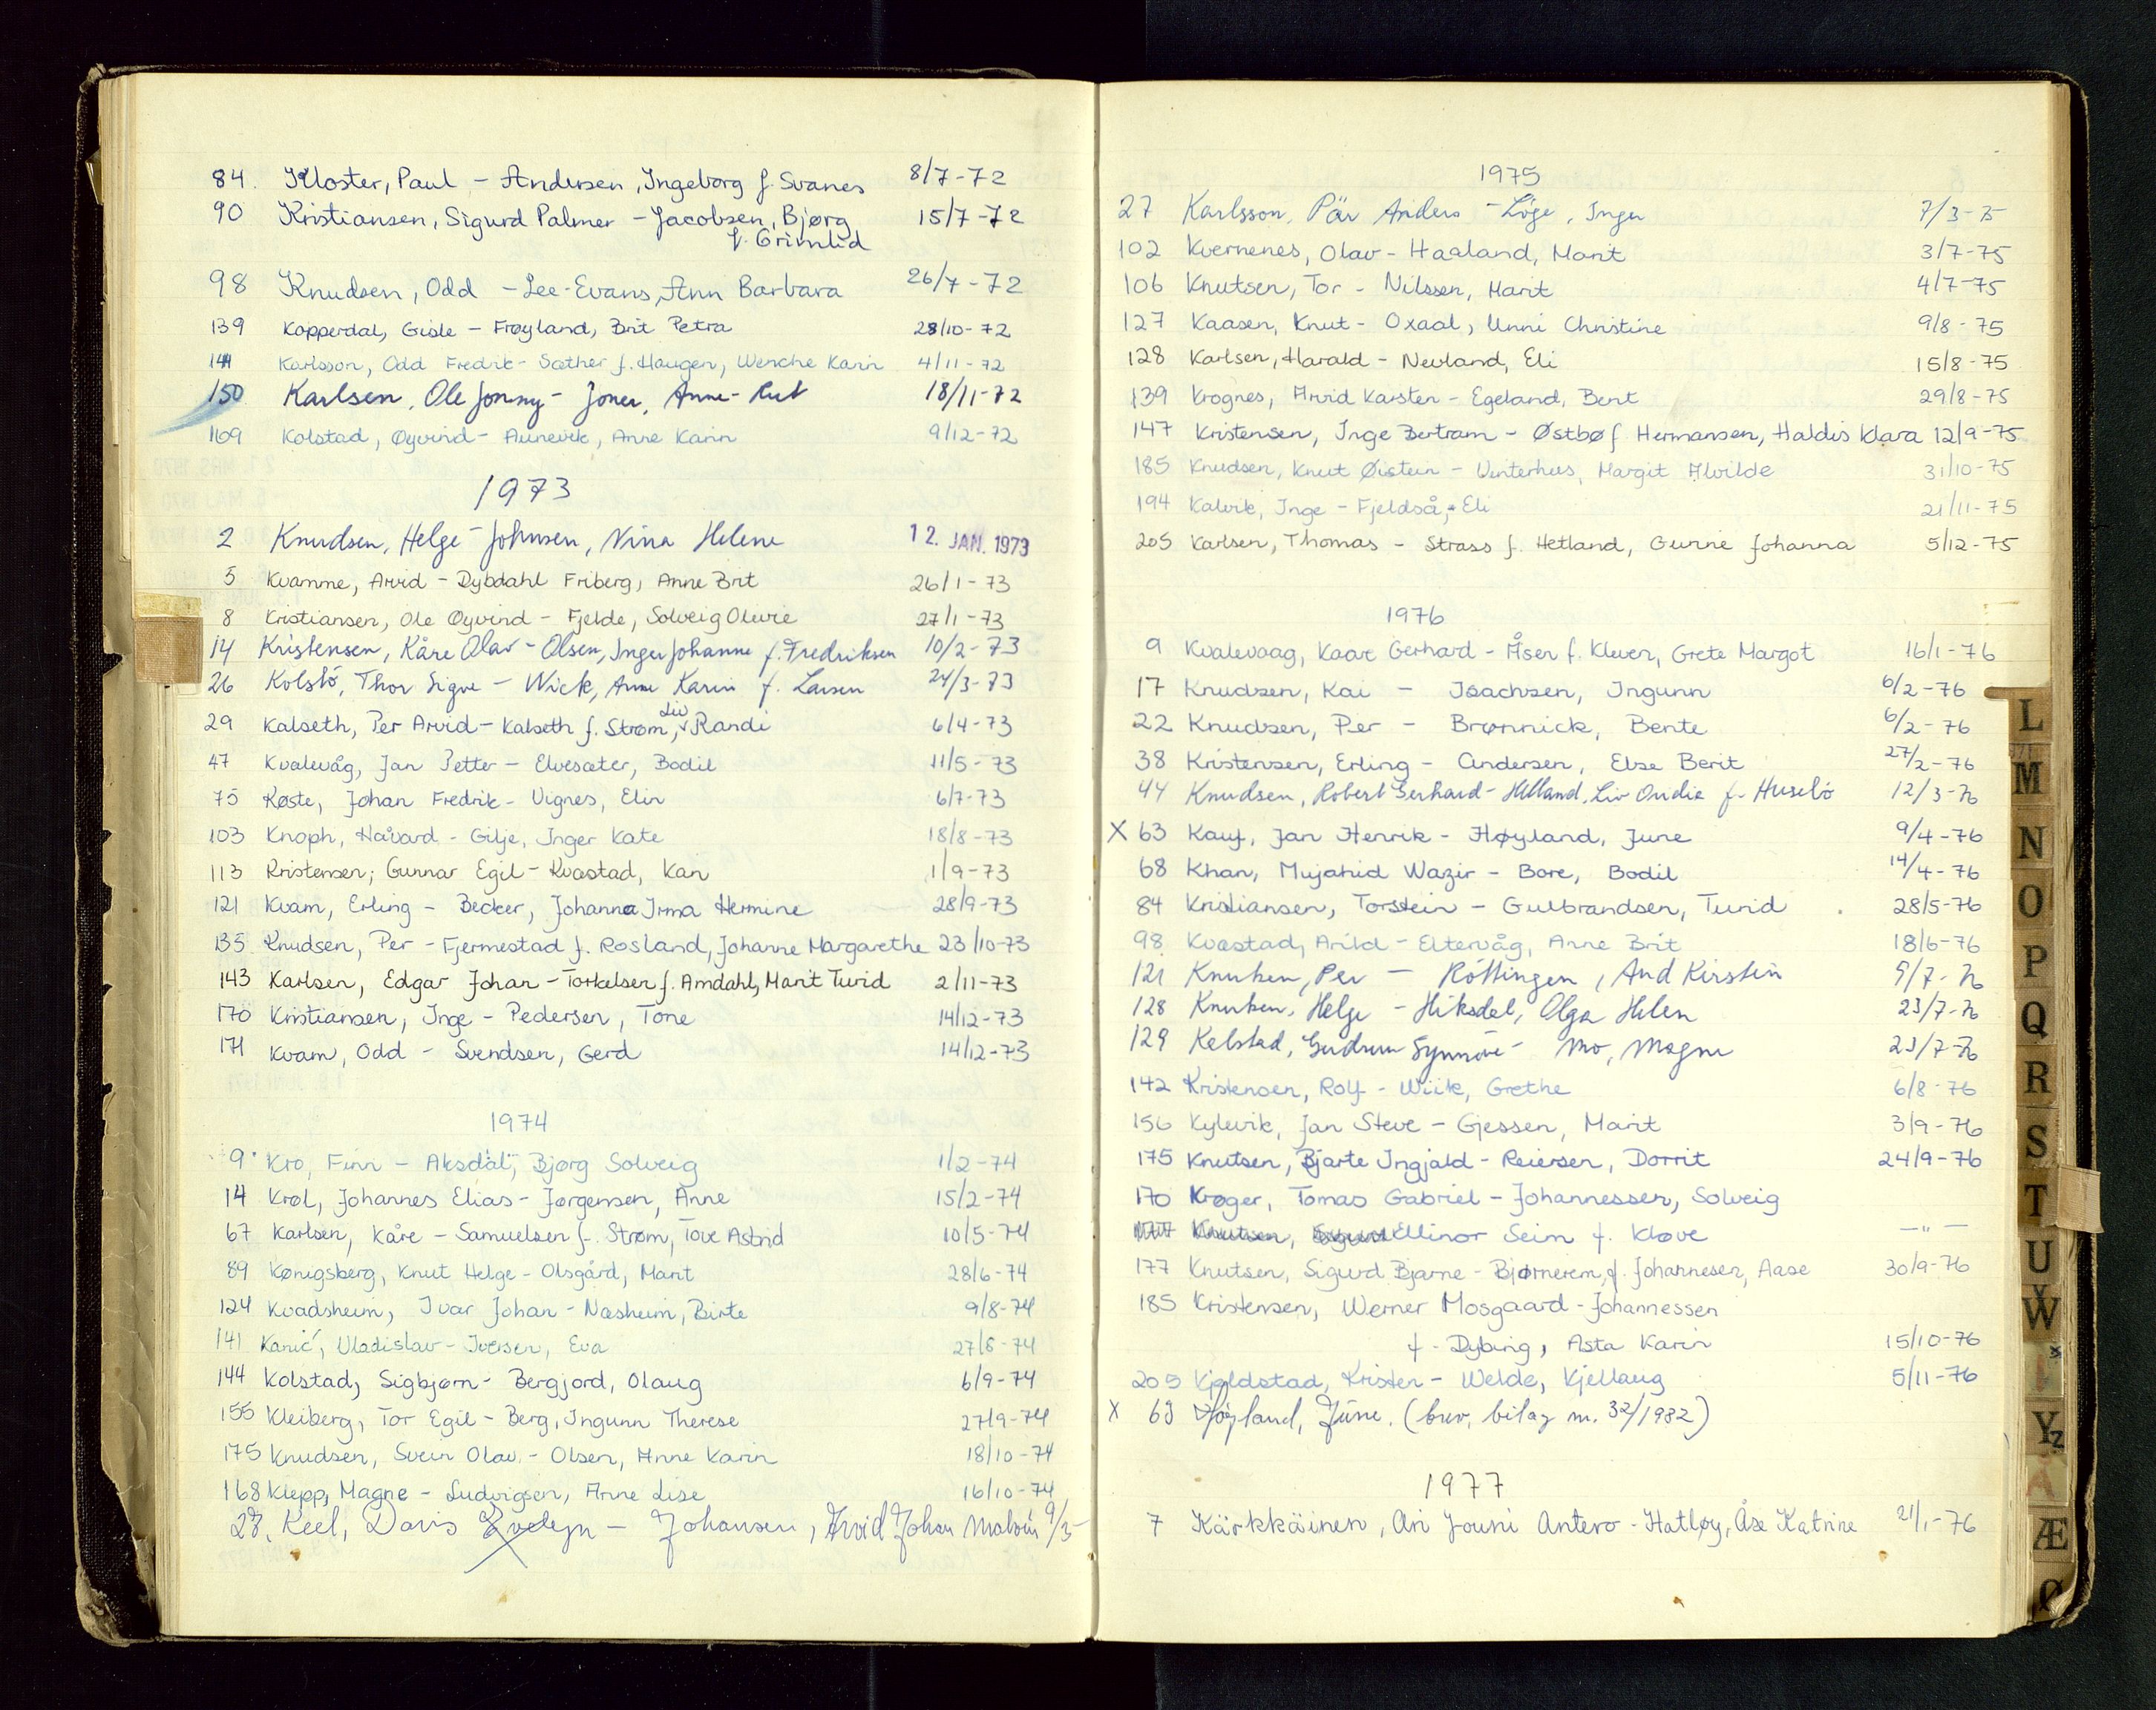 84. Kloster, Paul - Andersen, Ingeborg f. Svanes 8/7-72
90 Kristiansen, Sigurd Palmer - Jacobsen, Bjørg 15/7-72
f. Grimlid
98 Knudsen, Odd - Lee-Evans, Ann Barbara 26/7-72
139 Kopperdal, Gisle - Frøyland, Brit Petra 28/10-72
144 Karlsson, Odd Fredrik - Sæther f. Haugen, Wenche Karin 4/11-72
150 Karlsen, Ole Jonny - Joner, Anne-Rut 18/11-72
169 Kolstad, Øyvind - Aunevik, Anne Karin 9/12-72
1973
2 Knudsen, Helge - Johnsen, Nina Helene 12. JAN. 1973
5 Kvamme, Arvid - Dybdahl Friberg, Anne Brit 26/1-73
8 Kristiansen, Ole Øyvind - Fjelde, Solveig Olivie 27/1-73
14 Kristensen, Kåre Olav - Olsen, Inger Johanne f. Fredriksen 10/2-73
26 Kolstø, Thor Sigve - Wick, Anne Karin f. Larsen 24/3-73
29 Kalseth, Per Arvid - Kalseth f. Strøm, Liv Randi 6/4-73
47 Kvalevåg, Jan Petter - Elvesæter, Bodil 11/5-73
75 Køste, Johan Fredrik - Vignes, Elin 6/7-73
103 Knoph, Håvard - Gilje, Inger Kate 18/8-73
113 Kristensen, Gunnar Egil - Kvastad, Kari 1/9-73
121 Kvam, Erling - Becker, Johanna Irma Hermine 28/9-73
135. Knudsen, Per - Fjermestad f. Rosland, Johanne Margarethe 23/10-73
143 Karlsen, Edgar Johan - Torkelsen f. Amdahl, Marit Turid 2/11-73
170 Kristiansen, Inge - Pedersen, Tone 14/12-73
171 Kvam, Odd - Svendsen, Gerd 14/12-73
1974
9 Kro, Finn - Aksdal, Bjørg Solveig 1/2-74
14 Krøl, Johannes Elias - Jørgensen, Anne 15/2-74
67 Karlsen, Kåre - Samuelsen f. Strøm, Tove Astrid 10/5-74
89 Kønigsberg, Knut Helge - Olsgård, Marit 28/6-74
124 Kvadsheim, Ivar Johan - Næsheim, Birte 9/8-74
141 Karić, Vladislav - Iversen, Eva 27/8-74
144 Kolstad, Sigbjørn - Bergjord, Olaug 6/9-74
155 Kleiberg, Tor Egil - Berg, Ingunn Therese 27/9-74
175 Knudsen, Svein Olav. - Olsen, Anne Karin 18/10-74
168 Klepp, Magne - Ludvigsen, Anne Lise 16/10-74
28. Keel, Davis Evelyn - Johansen, Arvid Johan Malvin 9/3-
1975
27 Karlsson, Pär Anders - Löge, Inger 7/3-75
102 Kvernenes, Olav - Haaland, Marit 3/7-75
106 Knutsen, Tor - Nilssen, Marit 4/7-75
127 Kaasen, Knut - Oxaal, Unni Christine 9/8-75
128 Karlsen, Harald - Nevland, Eli 15/8-75
139 Krognes, Arvid Karsten - Egeland, Berit 29/8-75
147 Kristensen, Inge Bertram - Østbø f. Hermansen, Haldis Klara 12/9-75
185 Knudsen, Knut Øistein - Vinterhus, Margit Alvilde 31/10-75
194 Kalvik, Inge - Fjeldså, Eli 21/11-75
205 Karlsen, Thomas - Strass f. Hetland, Gurine Johanna 5/12-75
1976
9 Kvalevaag, Kaare Gerhard - Åser f. Klever, Grete Margot 16/1-76
17 Knudsen, Kai - Isachsen, Ingunn 6/2-76
22 Knudsen, Per - Brønnick, Bente 6/2-76
38 Kristensen, Erling - Andersen, Else Berit 27/2-76
44 Knudsen, Robert Gerhard - Helland, Liv Ovidia f. Husebø 12/3-76
X 63 Kauf, Jan Henrik - Høyland, June 9/4-76
68 Khan, Mujahid Wazir - Bore, Bodil 14/4-76
84 Kristiansen, Torstein - Gulbrandsen, Turid 28/5-76
98 Kvastad, Arild - Eltervåg, Anne Brit 18/6-76
121 Knutsen, Per - Röttingen, Aud Kirstin 9/7-76
128 Knutsen, Helge - Hiksdal, Olga Helen 23/7-76
129 Kolstad, Gudrun Synnöve - Mo, Magne 23/7-76
142 Kristensen, Rolf - Wiik, Grethe 6/8-76
156 Kylevik, Jan Steve - Gjessen, Marit 3/9-76
175 Knutsen, Bjarte Ingjald - Reiersen, Dorrit 24/9-76
170 Krøger, Tomas Gabriel - Johannessen, Solveig
Knutsen, Sigurd Ellinor Seim f. Kløve -"-
177 Knutsen, Sigurd Bjarne - Bjørnerem, f. Johannesen, Aase 30/9-76
185 Kristensen, Werner Mosgaard - Johannessen
f. Dybing, Asta Karin 15/10-76
205 Kjoldstad, Kristen - Welde, Kjellaug 5/11-76
X 63 Høyland, June. (brev, bilag nr. 32/1982)
1977
7 Kärkkäinen, Ari Jouni Antero - Hatløy, Åse Katrine 21/1-76
L
M
N
O
P
Q
R
S
T
U
V
W
Y
Z
Æ
Ø